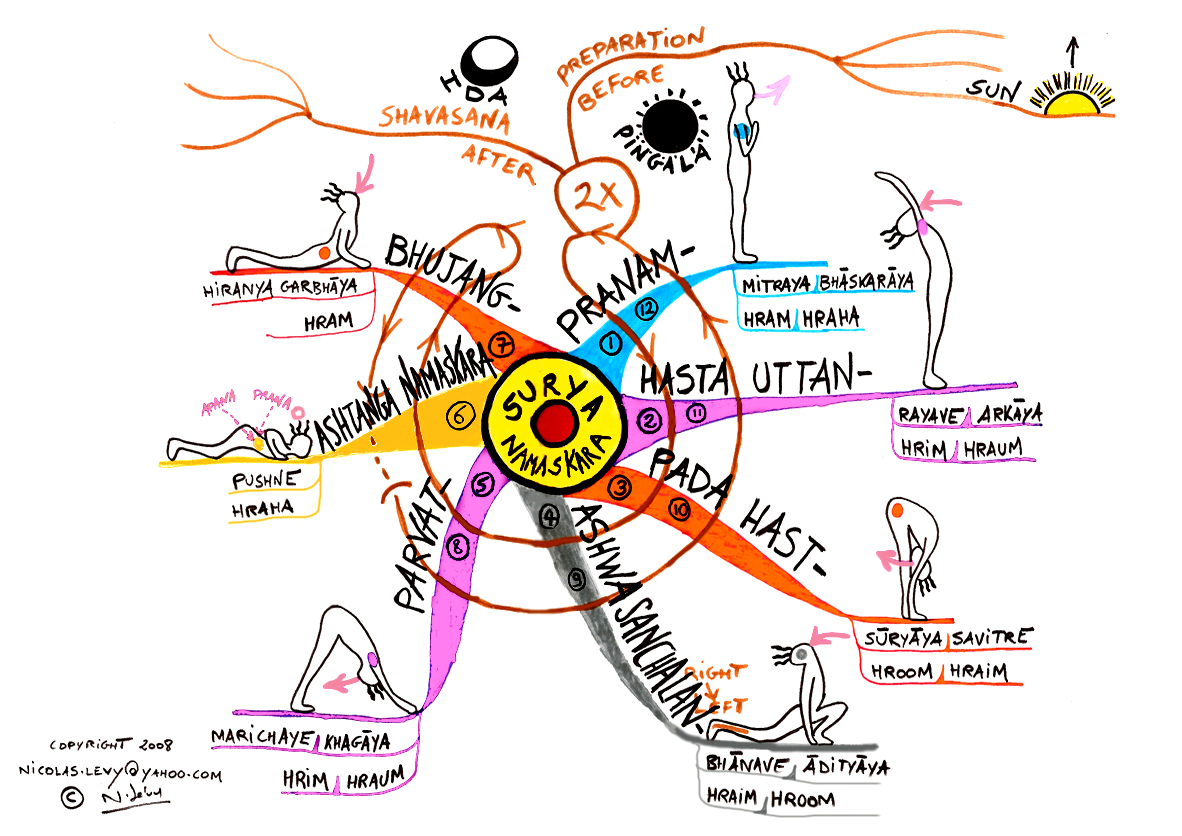 PREPARATION
BEFORE
SUN
IDA
PINGALA
SHAVASANA
AFTER
2X
BHUJANG-
7
HIRANYA GARBHĀYA
HRAM
PRANAM-
1 12
MITRAYA BHĀSKARĀYA
HRAM HRAHA
HASTA UTTAN-
2 11
RAYAVE ARKĀYA
HRIM HRAUM
ASHTANGA NAMASKARA
6
APANA PRANA
PUSHNE
HRAHA
SURYA
NAMASKARA
PADA HAST-
3
10
SŪRYĀYA SAVITRE
HROOM HRAIM
PARVAT-
5
8
MARICHAYE KHAGĀYA
HRIM HRAUM
ASHWA SANCHALAN-
4
9
RIGHT
LEFT
BHĀNAVE ĀDITYĀYA
HRAIM HROOM
COPYRIGHT 2008
NICOLAS.LEVY@YAHOO.COM
© N. Levy